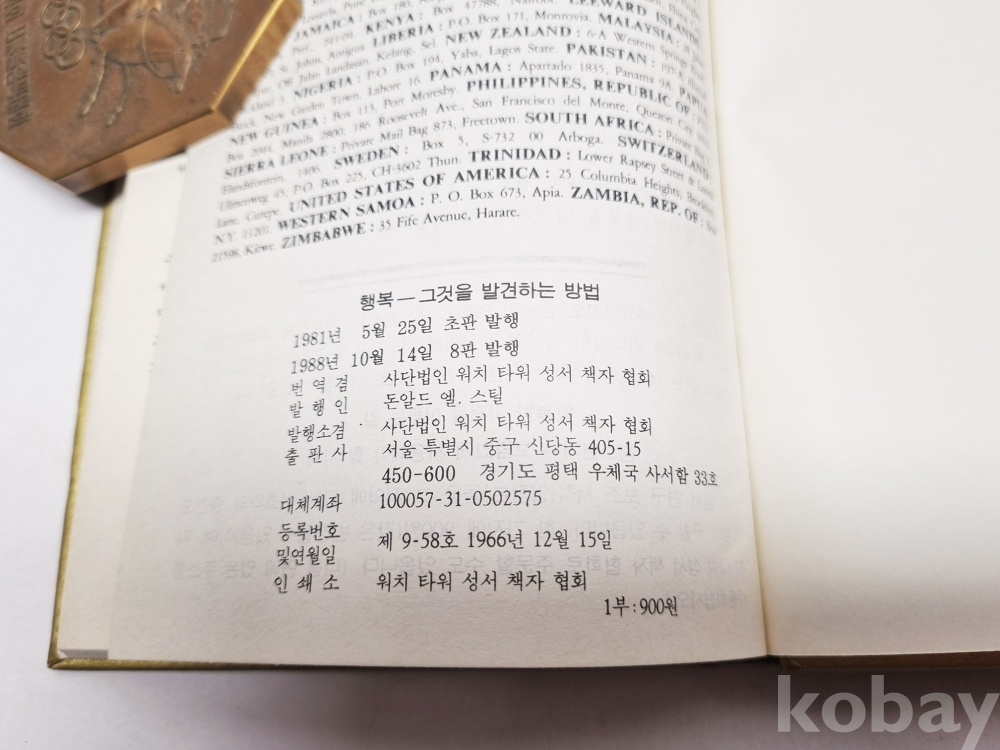 JAMAICA : Box 180,
KENYA : Box 47788, Nairobi. LEEWARD ISLANDS
St. Johns, Antigua. LIBERIA : P.O. Box 171, Monrovia. MALAYSIA : 28 Jalan
Off Jalan Landasan, Kelang, Sel. NEW ZEALAND : 6-A Western Springs
NIGERIA : P.O. Box 194, Yaba, Lagos State. PAKISTAN : 197-A Ahmad
Block, New Garden Town, Lahore 16. PANAMA : Apartado 1835, Panama 9A. PAPUA
NEW GUINEA : Box 113, Port Moresby. PHILIPPINES, REPUBLIC OF : P.O.
Box 2044, Manila 2800, 186 Roosevelt Ave., San Francisco del Monte, Quezon City
SIERRA LEONE : Private Mail Bag 873, Freetown. SOUTH AFRICA : Private Bag 2,
Elandsfontein, 1406. SWEDEN : Box 5, S-732 00 Arboga. SWITZERLAND :
Ulmenweg 45, P.O. Box 225, CH-3602 Thun. TRINIDAD : Lower Rapsey Street &
Lane, Curepe. UNITED STATES OF AMERICA : 25 Columbia Heights, Brooklyn,
N.Y. 11201. WESTERN SAMOA : P. O. Box 673, Apia. ZAMBIA, REP. OF : Box
21598, Kitwe. ZIMBABWE : 35 Fife Avenue, Harare.
행복 — 그것을 발견하는 방법
1981년 5월 25일 초판 발행
1988년 10월 14일 8판 발행
번 역 겸 사단법인 워치 타워 성서 책자 협회
발 행 인 돈알드 엘. 스틸
발행소겸 · 사단법인 워치 타워 성서 책자 협회
출 판 사 서울 특별시 중구 신당동 405-15
450-600 경기도 평택 우체국 사서함 33호
대체계좌 100057-31-0502575
등록번호
및연월일 제 9-58호 1966년 12월 15일
인 쇄 소 워치 타워 성서 책자 협회
1부 : 900원
kobay